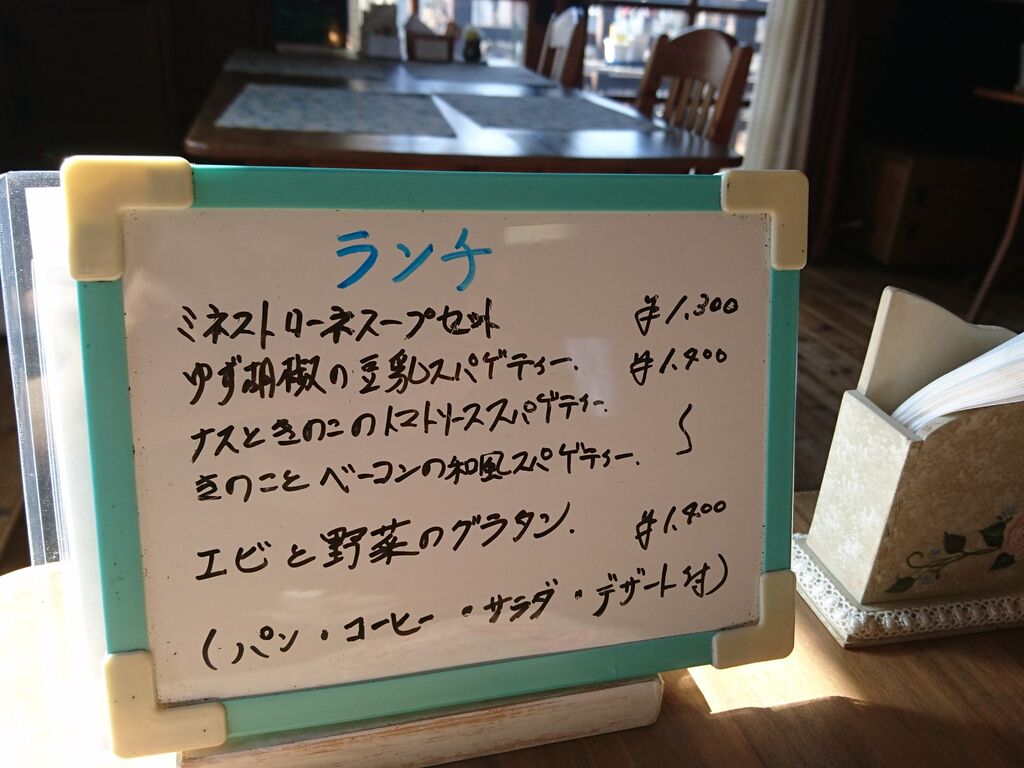 ランチ
ミネストローネスープセット ¥1,300
ゆず胡椒の豆乳スパゲティー. ¥1,400
ナスときのこのトマトソーススパゲティー. 〜
きのことベーコンの和風スパゲティー.
エビと野菜のグラタン. ¥1,400
(パン・コーヒー・サラダ・デザート付)